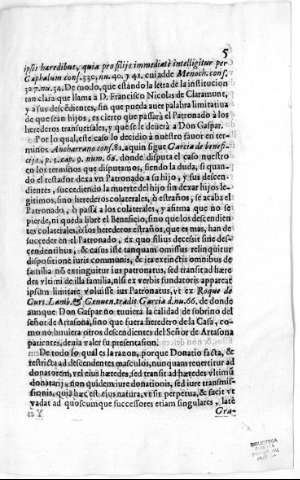 5
ipsis hæredibus, quia pro filijs immediatè intelligitur per
Cephalum cons. 330. nu. 40. y 41. cui adde Menoch. cons.
32. nu. 32. De modo, que estando la letra de la institucion
tan clara que llama à D. Francisco Nicolas de Claramunt,
y a sus descendientes, sin que pueda auer palabra limitatiua
de que sean hijos, es cierto que passarà el Patronado à los
herederos transuersales, y que se le deuerà a Don Gaspar.
Por lo qual, este caso lo decidiò a nuestro fauor en ter-
minos Ancharrano cons. 82. a quien sigue Garcia de benefi-
cijs, p. 5. cap. 9. num. 62. donde disputa el caso nuestro
en los terminos que disputamos, siendo la duda, si quan-
do el testador dexa vn Patronado a su hijo, y sus descen-
dientes, succediendo la muerte del hijo sin dexar hijos le-
gitimos, sino herederos colaterales, ò estraños, se acaba el
Patronado, ò passa à los colaterales, y afirma que no se
pierde, ni queda libre el Beneficio, sino que los descendien
tes colaterales, ò los herederos estraños, que es mas, han de
succeder en el Patronado, ex quo filius decessit sine des-
cendentibus, & casus iste tanquam omissus relinquitur
dispositione iuris communis, & ita extinctis omnibus de
familia nõ extinguitur ius patronatus, sed transit ad hære
des vltimi de illa familia, nisi ex verbis fundatoris appareat
ipsum limitare voluisse ius Patronatus, vt ex Roquo de
Curt. Lamb. & Genuen. tradit Garcia d. nu. 66. de donde
aunque Don Gaspar no tuuiera la calidad de sobrino del
señor de Artasona, sino que fuera heredero de la Casa, co-
mo no huuiera otros descendientes del Señor de Artasona
patientes, deuia valer su presentacion.
De todo lo qual es la razon, porque Donatio facta, &
restricta ad descendentes masculos, nunquam reuertitur ad
donatorem, vel eius hæredes, sed transit ad hæredes vltimi
donatarij non quidem iure donationis, sed iure transmis-
sionis, quia hæc est eius natura, vt sit perpetua, & facit vt
vadat ad quoscumque successores etiam singulares, latè
Gra-
BIBLIOTECA